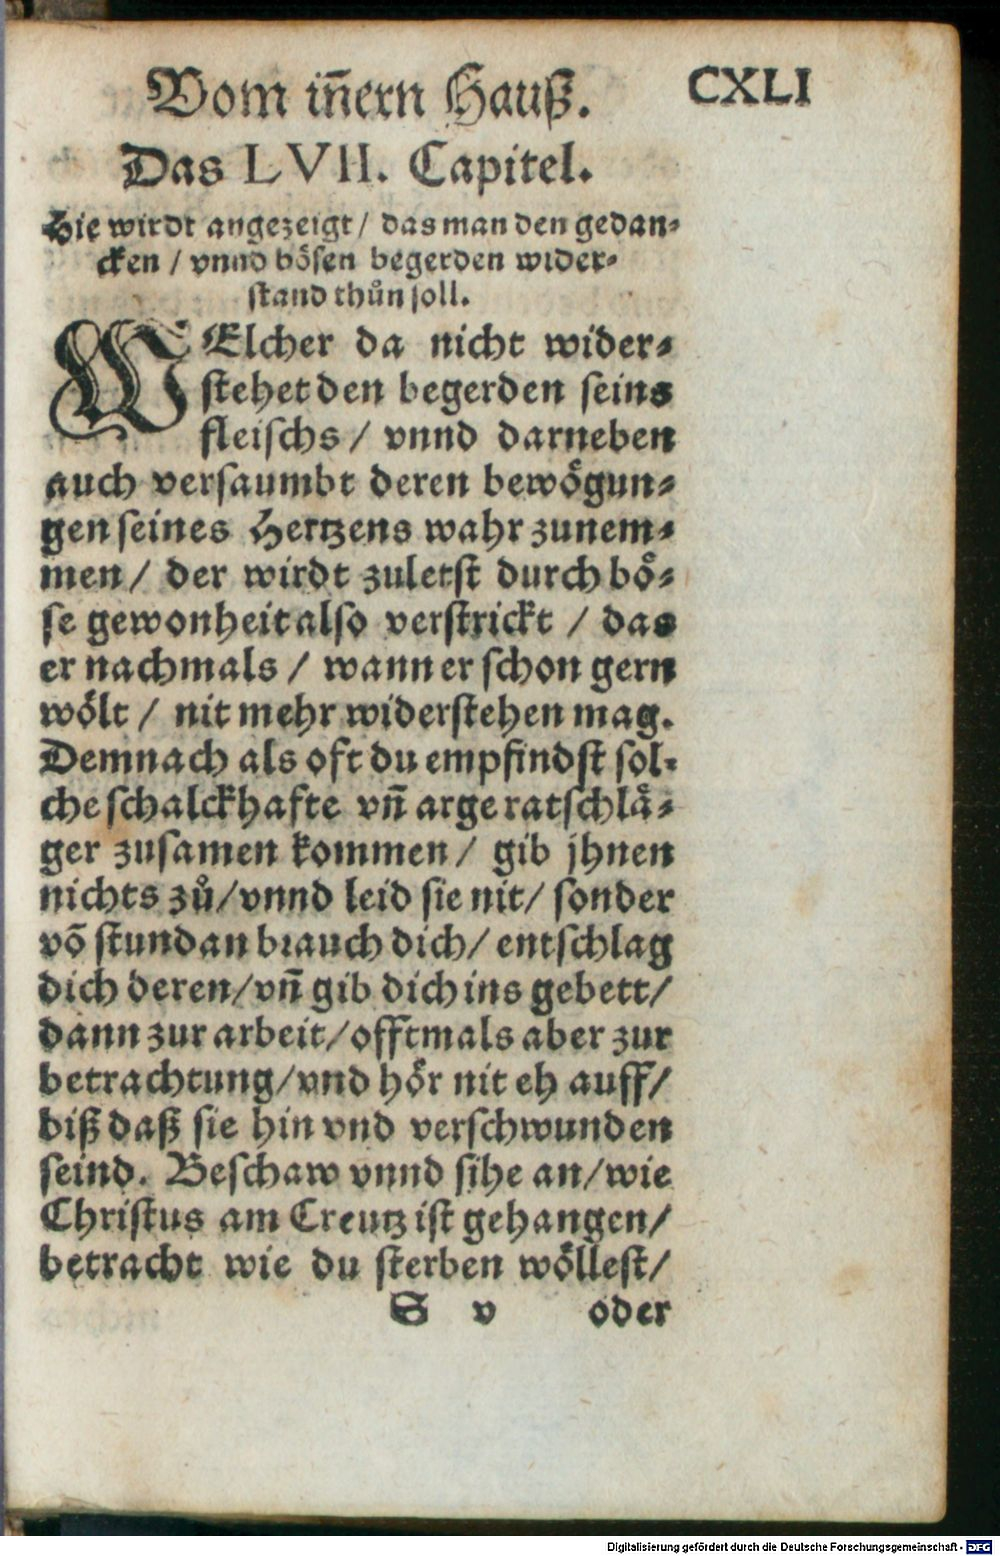 Vom iñern Hauß. CXLI
Das LVII. Capitel.
Hie wirdt angezeigt / das man den gedan-
cken / vnnd bösen begerden wider-
stand thůn soll.
WElcher da nicht wider-
stehet den begerden seins
fleischs / vnnd darneben
auch versaumbt deren bewögun-
gen seines Hertzens wahr zunem-
men / der wirdt zuletst durch bö-
se gewonheit also verstrickt / das
er nachmals / wann er schon gern
wölt / nit mehr widerstehen mag.
Demnach als oft du empfindst sol-
che schalckhafte vñ arge ratschlä-
ger zusamen kommen / gib jhnen
nichts zů / vnnd leid sie nit / sonder
võ stund an brauch dich / entschlag
dich deren / vñ gib dich ins gebett /
dann zur arbeit / offtmals aber zur
betrachtung / vnd hör nit eh auff /
biß daß sie hin vnd verschwunden
seind. Beschaw vnnd sihe an / wie
Christus am Creutz ist gehangen /
betracht wie du sterben wöllest /
S v oder
Digitalisierung gefördert durch die Deutsche Forschungsgemeinschaft - DFG